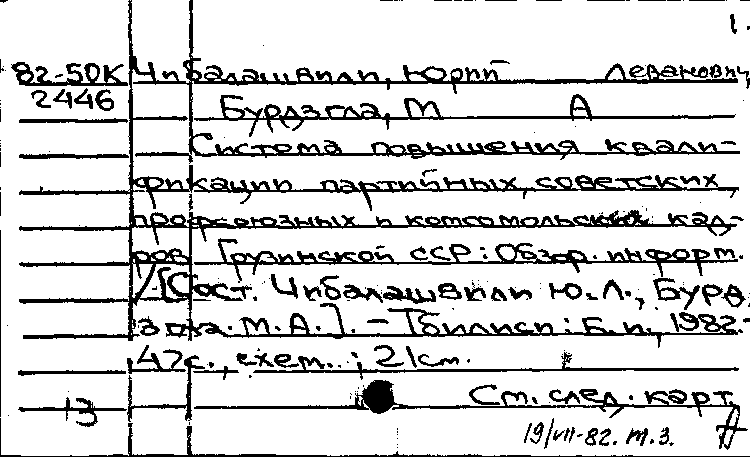 1.
82-50К Чибалашвили, Юрий Леванович,
2446 Бурдзгла, М А
Система повышения квали-
фикации партийных, советских,
профсоюзных и комсомольских кад-
ров Грузинской ССР: Обзор. информ.
/[Сост. Чибалашвили Ю.Л., Бурд
згла. М.А.]. - Тбилиси: Б.и., 1982.-
47с., схем.; 21см.
13 См. след. карт.
19/VII-82. т.3.